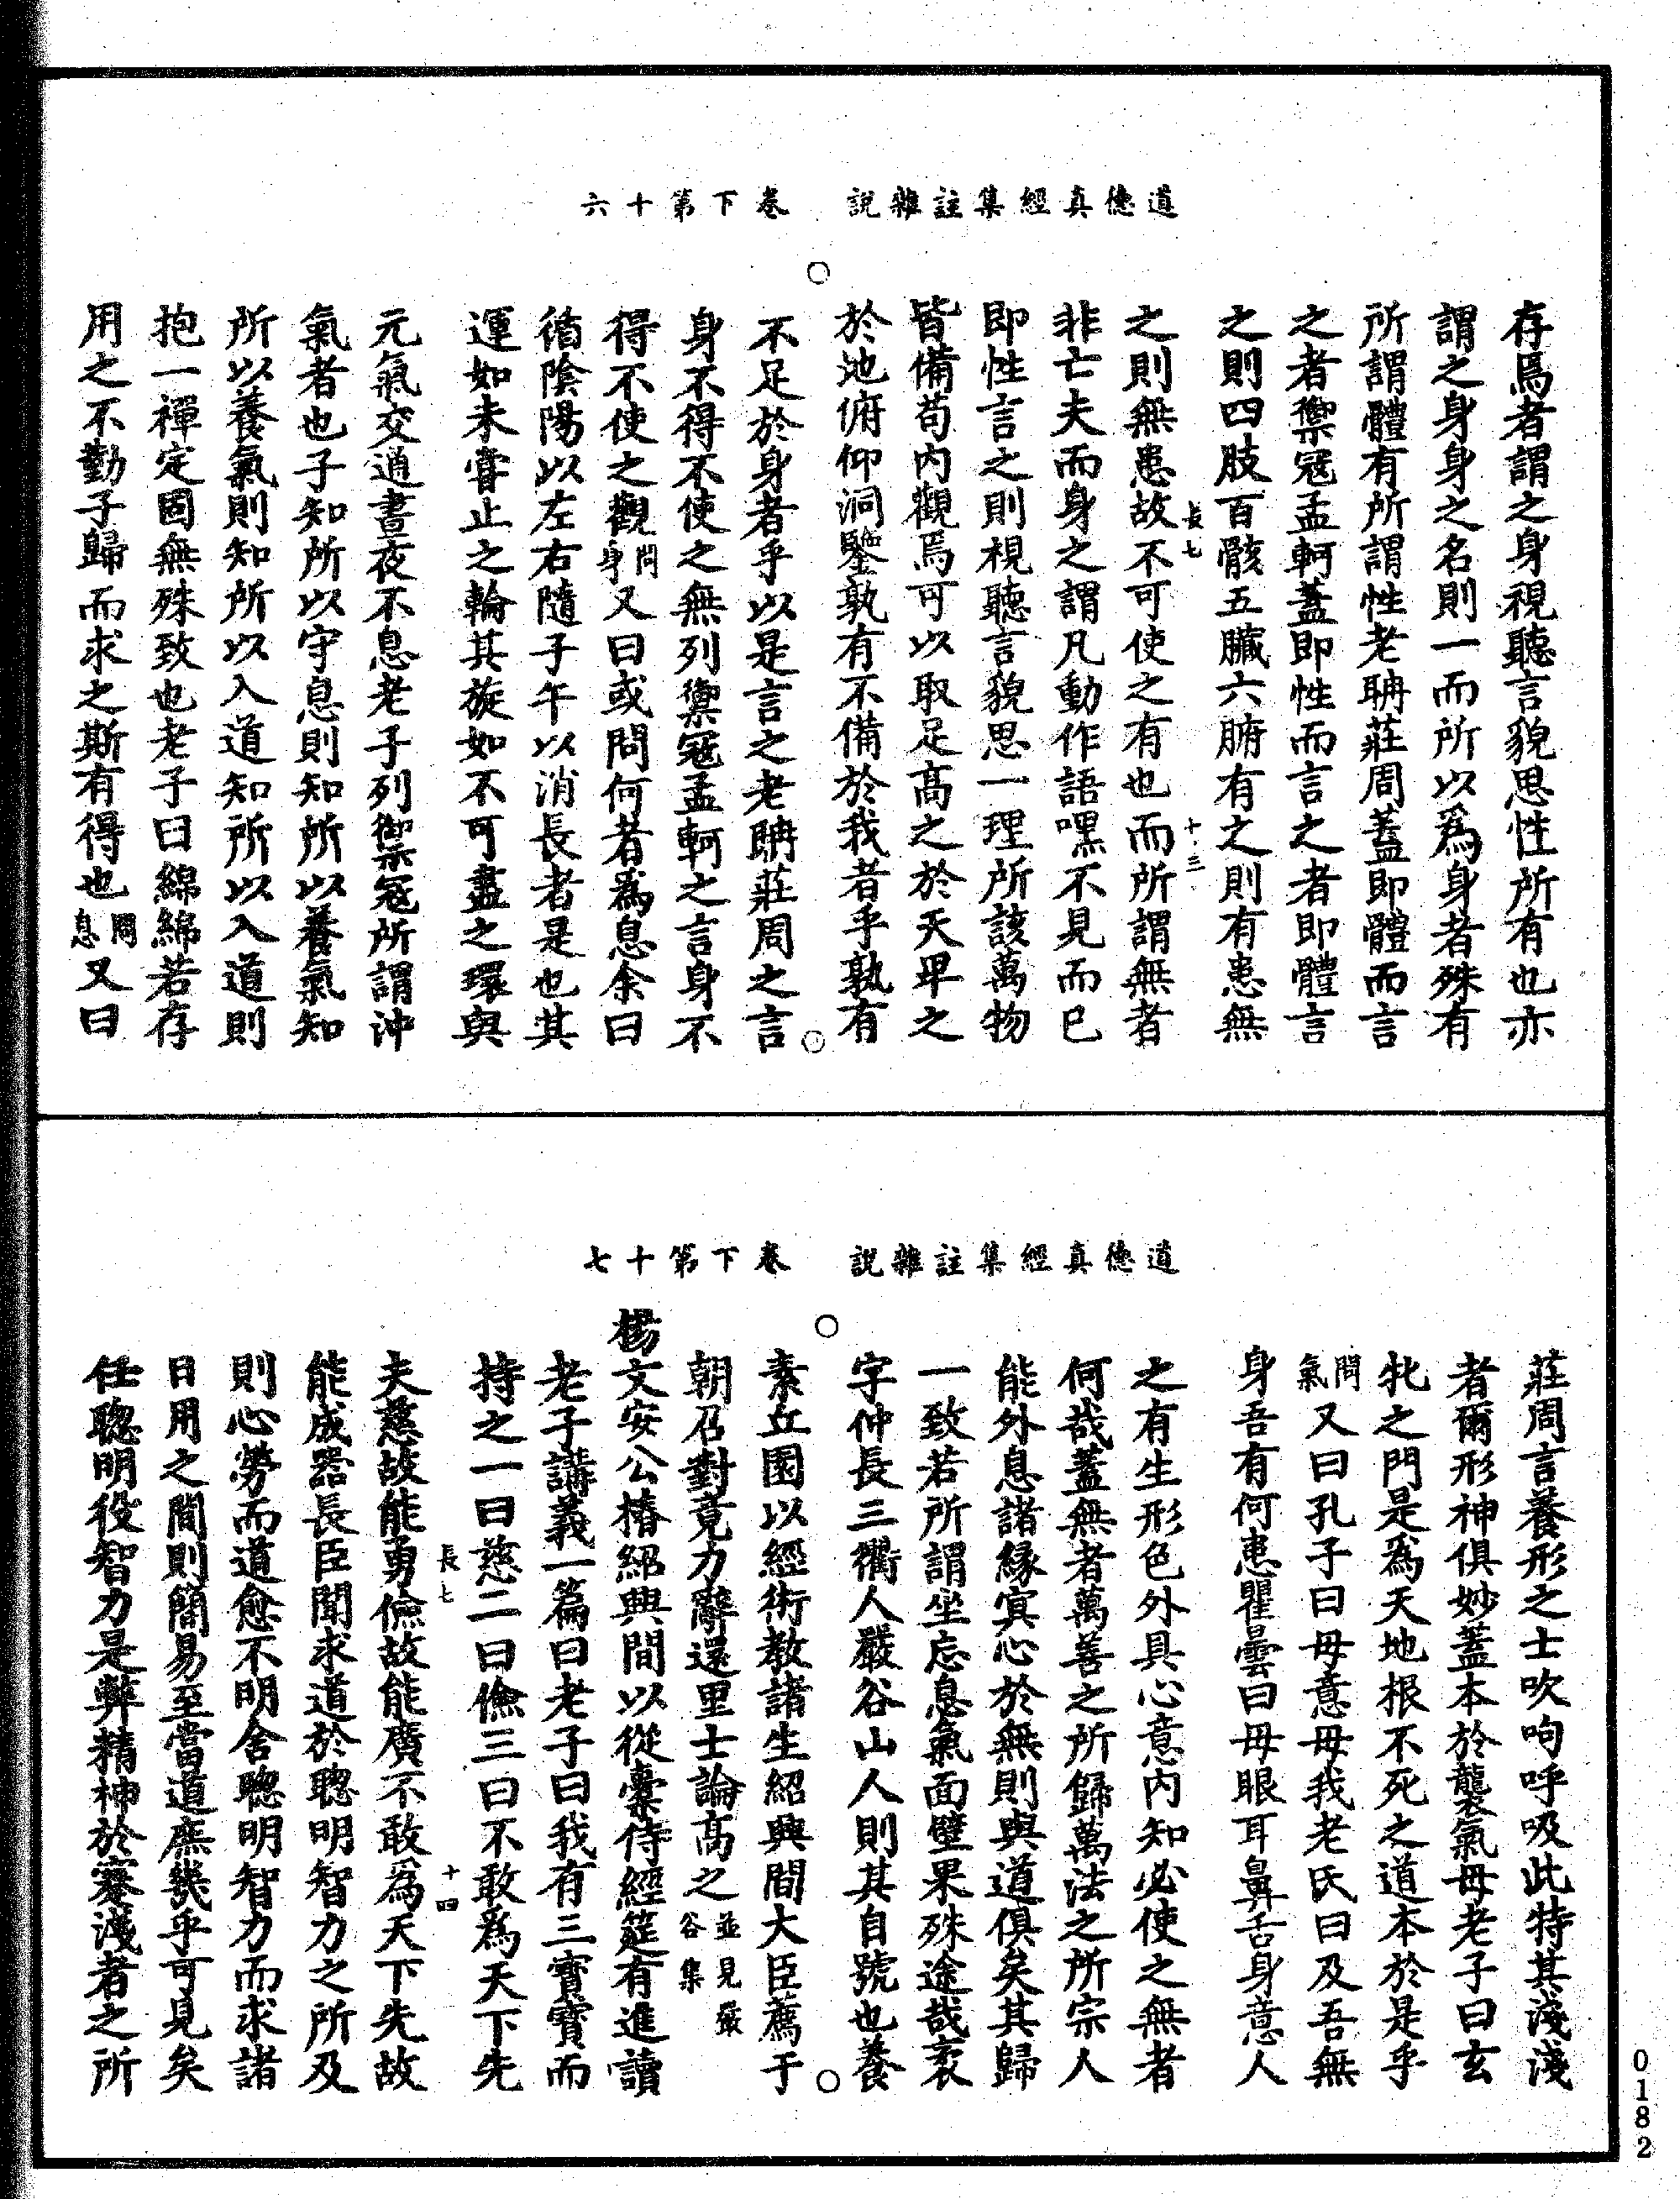 道德真經集註雜說　卷下第十六
存焉者謂之身視聽言貌思性所有也亦
謂之身身之名則一而所以為身者殊有
所謂體有所謂性老聃莊周蓋即體而言
之者禦冦孟軻蓋即性而言之者即體言
之則四肢百骸五臟六腑有之則有患無
長七　十三
之則無患故不可使之有也而所謂無者
非亡夫而身之謂凡動作語嘿不見而已
即性言之則視聽言貌思一理所該萬物
皆備苟內觀焉可以取足高之於天卑之
於地俯仰洞鑒孰有不備於我者乎孰有
不足於身者乎以是言之老聃莊周之言
身不得不使之無列禦冦孟軻之言身不
得不使之觀問身又曰或問何者為息余曰
循陰陽以左右隨子午以消長者是也其
運如未嘗止之輪其旋如不可盡之環與
元氣交通晝夜不息老子列禦冦所謂沖
氣者也子知所以守息則知所以養氣知
所以養氣則知所以入道知所以入道則
抱一禪定固無殊致也老子曰綿綿若存
用之不勤子歸而求之斯有得也問息又曰
道德真經集註雜說　卷下第十七
莊周言養形之士吹呴呼吸此特其淺淺
者爾形神俱妙蓋本於襲氣母老子曰玄
牝之門是為天地根不死之道本於是乎
問氣又曰孔子曰毋意毋我老氏曰及吾無
身吾有何患瞿曇曰毋眼耳鼻舌身意人
之有生形色外具心意內知必使之無者
何哉蓋無者萬善之所歸萬法之所宗人
能外息諸緣冥心於無則與道俱矣其歸
一致若所謂坐忘息氣面壁果殊途哉袤
字仲長三衢人嚴谷山人則其自號也養
素丘園以經術教諸生紹興間大臣薦于
朝召對竟力辭還里士論高之並見嚴谷集
楊文安公椿紹興間以從橐侍經筵有進讀
老子講義一篇曰老子曰我有三寶寶而
持之一曰慈二曰儉三曰不敢為天下先
長七　十四
夫慈故能勇儉故能廣不敢為天下先故
能成器長臣聞求道於聰明智力之所及
則心勞而道愈不明舍聰明智力而求諸
日用之間則簡易至當道庶幾乎可見矣
任聰明役智力是弊精神於蹇淺者之所
0182